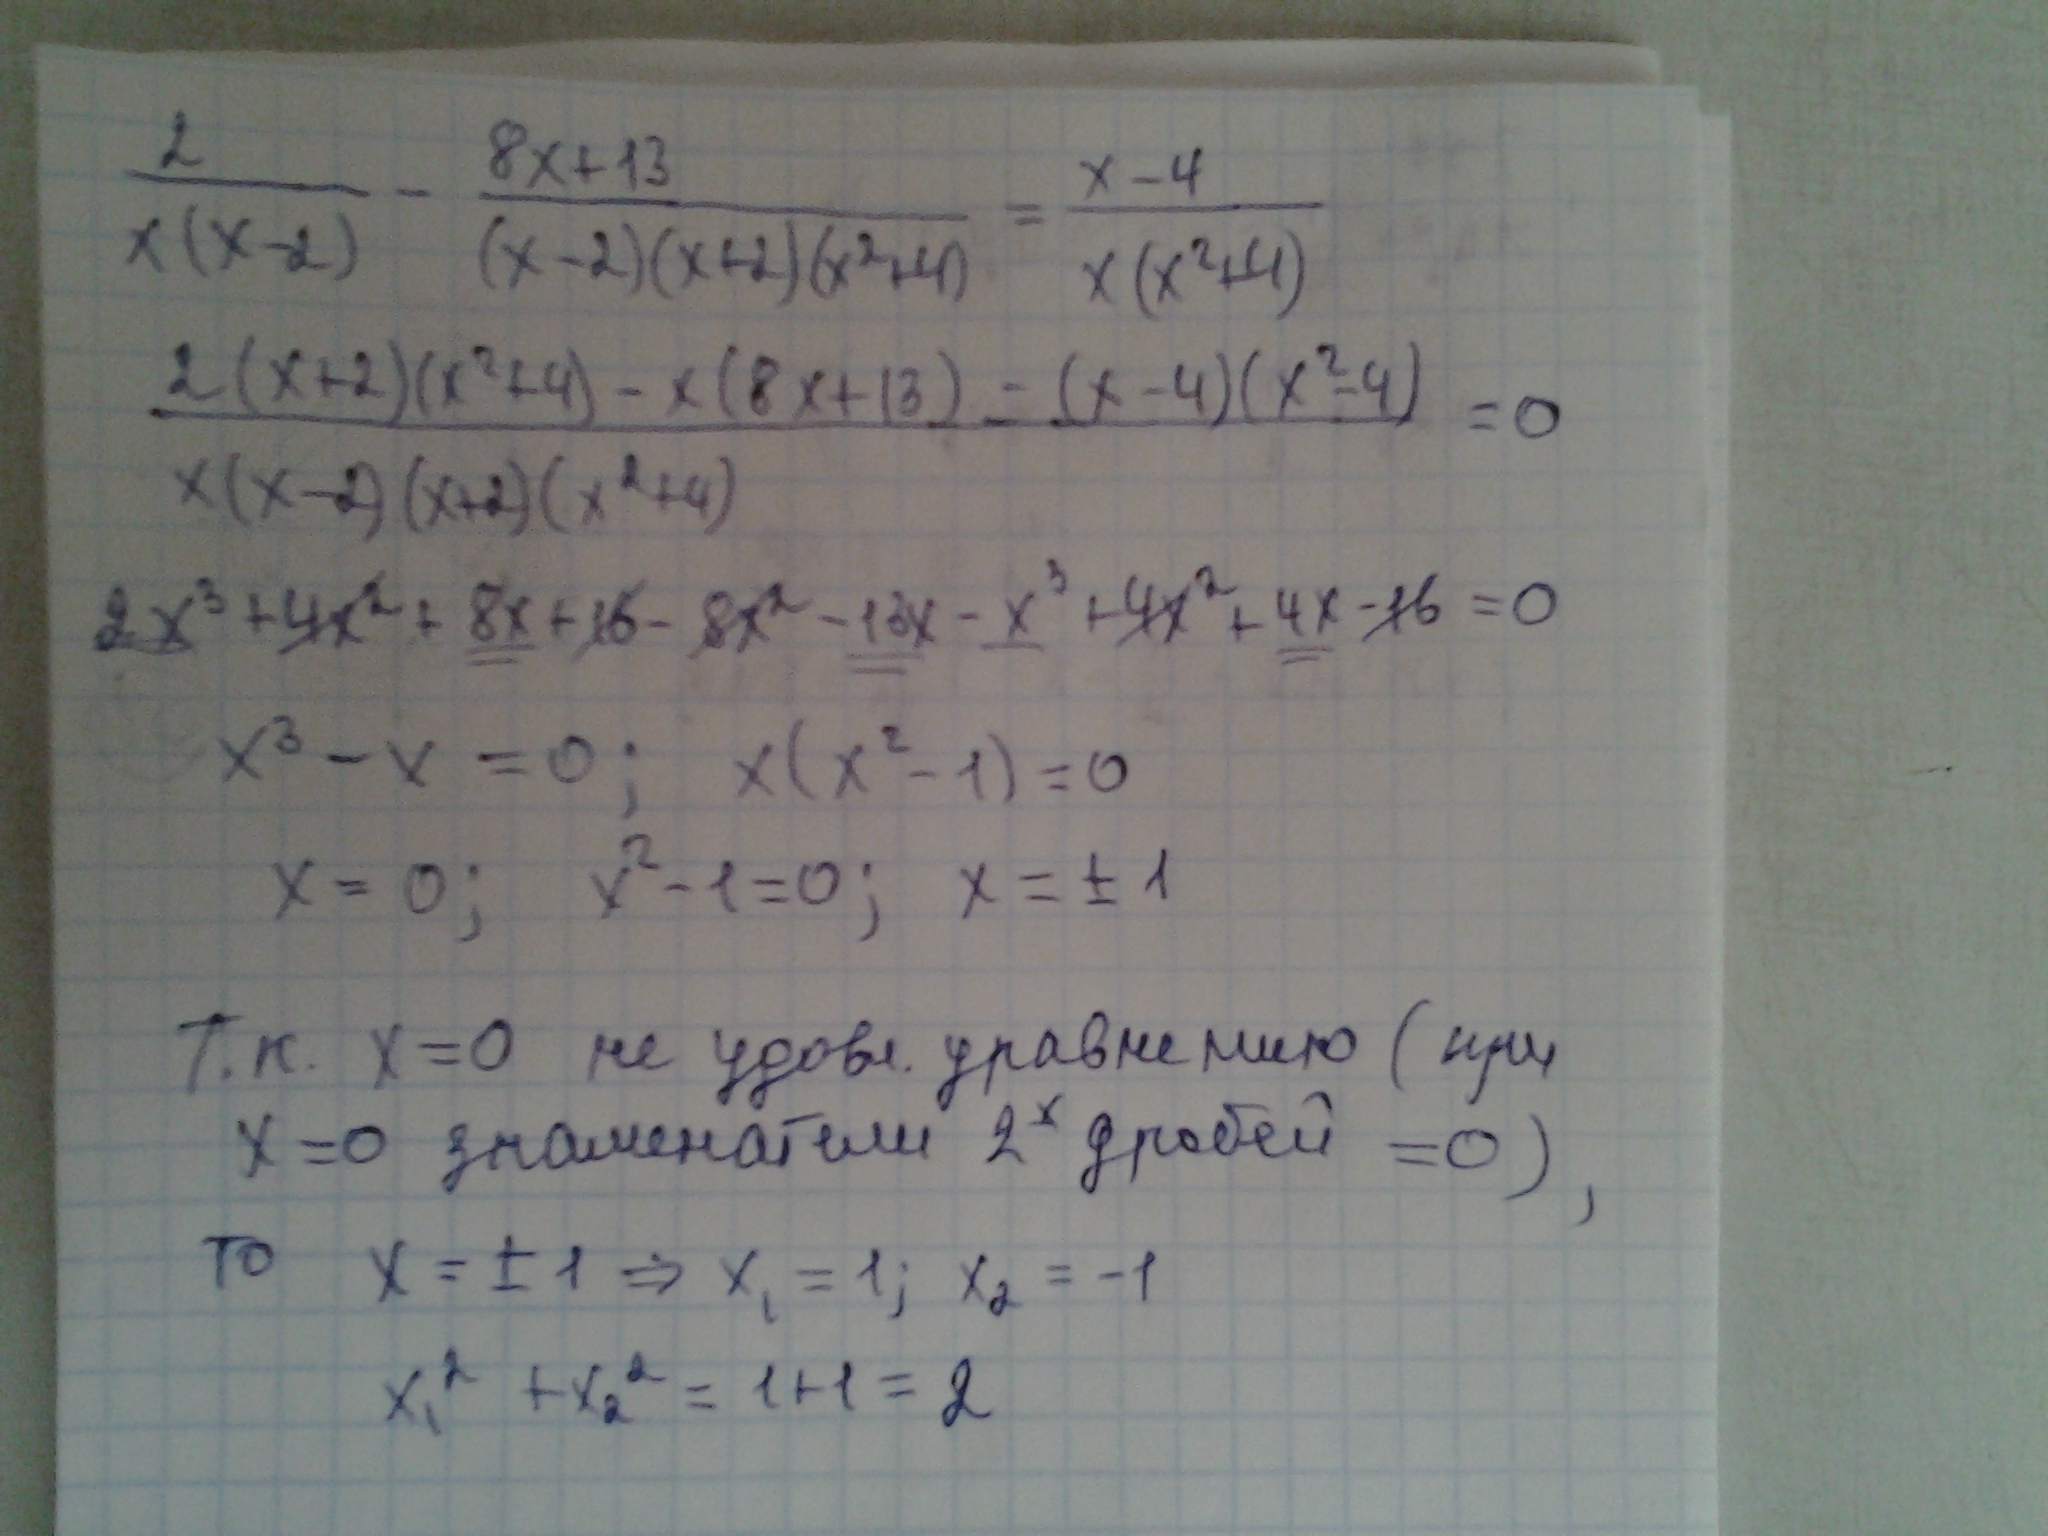 2/(x(x-2)) - (8x+13)/((x-2)(x+2)(x²+4)) = (x-4)/(x(x²+4))
(2(x+2)(x²+4) - x(8x+13) - (x-4)(x²-4))/(x(x-2)(x+2)(x²+4)) = 0
2x³+4x²+8x+16-8x²-13x-x³+4x²+4x-16=0
x³-x=0; x(x²-1)=0
x=0; x²-1=0; x=±1
Т.к. x=0 не удовл. уравнению (при
x=0 знаменатели 2ˣ дробей =0),
то x=±1 ⇒ x₁=1; x₂=-1
x₁²+x₂²=1+1=2